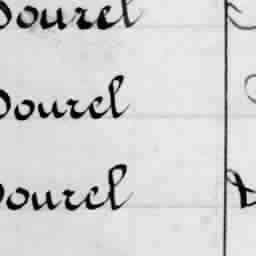 Dourel
Dourel
Dourel